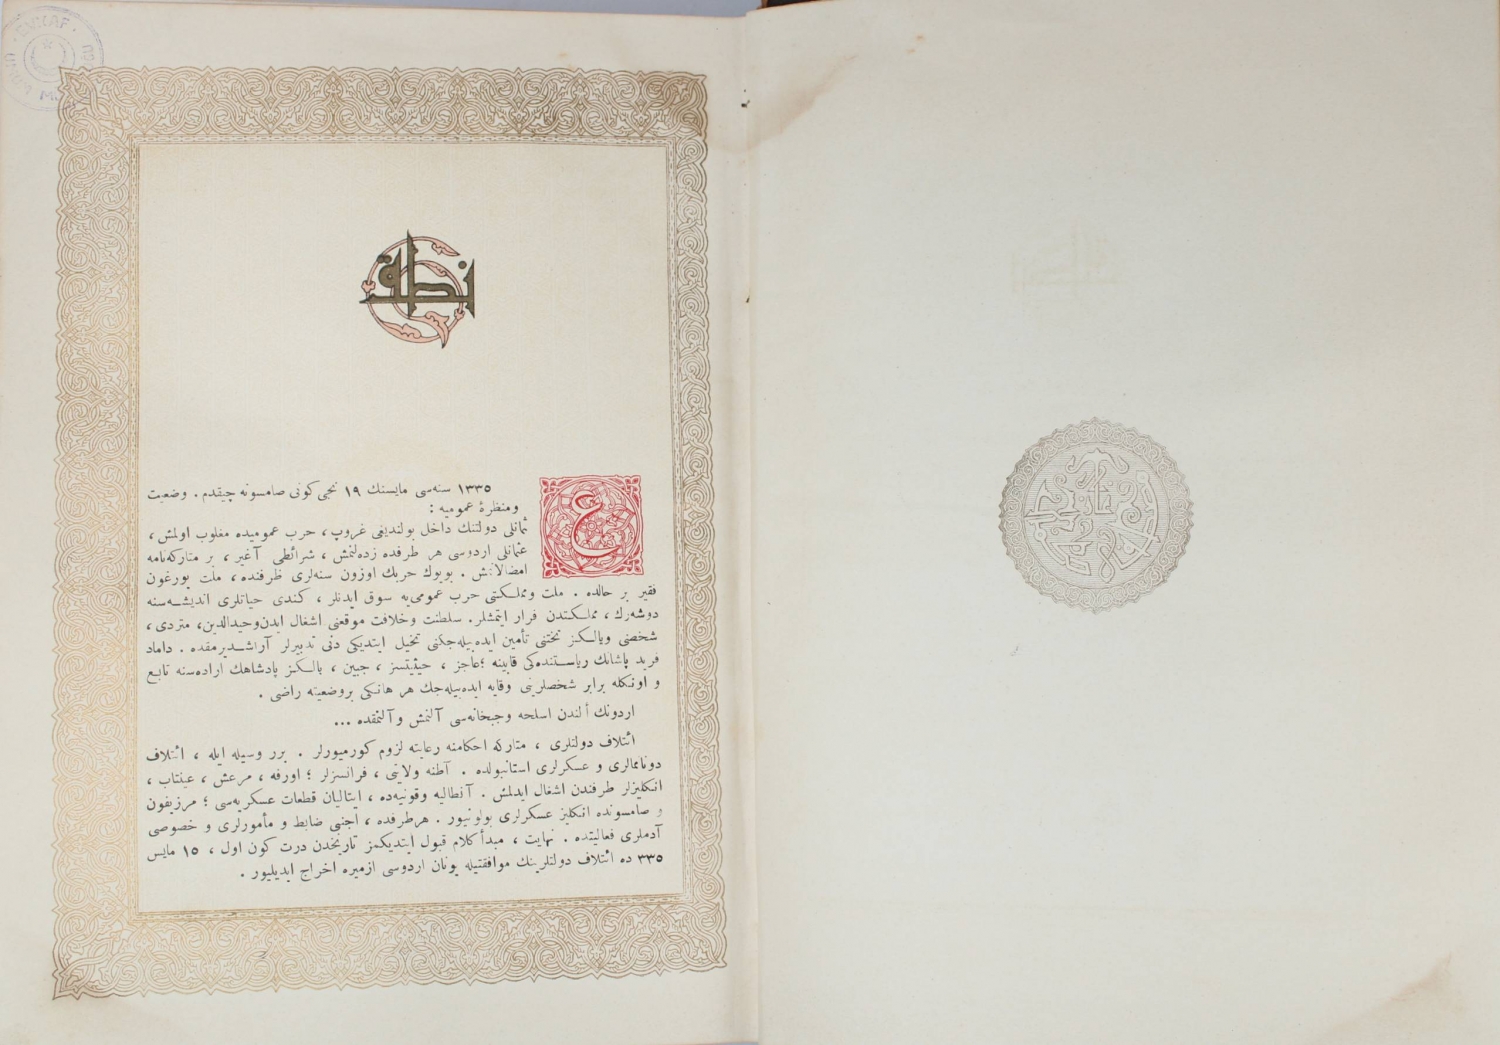 نطق
١٣٣٥ سنه‌سی مايسنك ١٩ نجی كونی صامسونه چيقدم . وضعيت
ومنظرهٔ عموميه :
ع
ثمانلی دولتنك داخل بولنديغی غروپ ، حرب عموميده مغلوب اولمش ،
عثمانلی اردوسی هر طرفده زده‌لنمش ، شرائطی آغير ، بر متاركه‌نامه
امضالانمش . بويوك حربك اوزون سنه‌لری ظرفنده ، ملت يورغون
فقير بر حالده . ملت ومملكتی حرب عمومی‌يه سوق ايدنلر ، كندی حياتلری انديشه‌سنه
دوشه‌رك ، مملكتدن فرار ايتمشلر . سلطنت وخلافت موقعنی اشغال ايدن وحيدالدين ، متردی ،
شخصنی ويالكز تختنی تأمين ايده‌بيله‌جكنی تخيل ايتديكی دنی تدبيرلر آراشديرمقده . داماد
فريد پاشانك رياستنده‌كی قابينه ؛ عاجز ، حيثيتسز ، جبين ، يالكز پادشاهك اراده‌سنه تابع
و اونكله برابر شخصلرينی وقايه ايده‌بيله‌جك هر هانكی بر وضعيته راضی .
اردونك ألندن اسلحه وجبخانه‌سی آلنمش وآلنمقده ...
ائتلاف دولتلری ، متاركه احكامنه رعايته لزوم كورميورلر . برر وسيله ايله ، ائتلاف
دونانمالری و عسكرلری استانبولده . آطنه ولايتی ، فرانسزلر ؛ اورفه ، مرعش ، عينتاب ،
انكليزلر طرفندن اشغال ايدلمش . آنطاليه وقونيه‌ده ، ايتاليان قطعات عسكريه‌سی ؛ مرزيفون
و صامسونده انكليز عسكرلری بولونيور . هرطرفده ، اجنبی ضابط و مأمورلری و خصوصی
آدملری فعاليتده . نهايت ، مبدأ كلام قبول ايتديكمز تاريخدن درت كون اول ، ١٥ مايس
٣٣٥ ده ائتلاف دولتلرينك موافقتيله يونان اردوسی ازميره اخراج ايديليور .